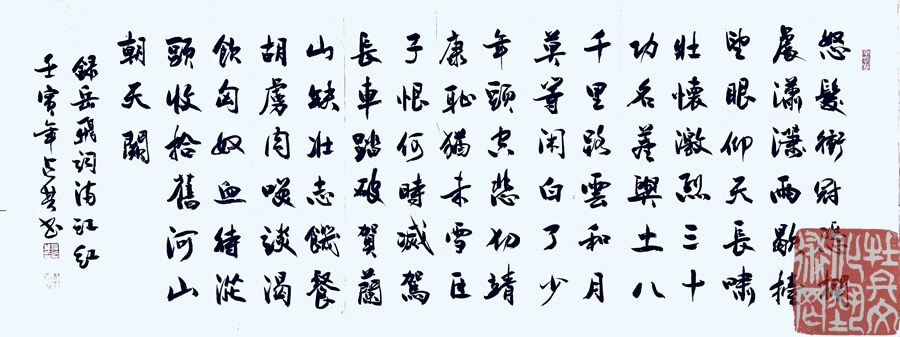 怒髮衝冠憑欄
處瀟瀟雨歇抬
望眼仰天長嘯
壯懷激烈三十
功名塵與土八
千里路雲和月
莫等闲白了少
年頭空悲切靖
康恥猶未雪臣
子恨何時滅駕
長車踏破賀蘭
山缺壯志饑餐
胡虜肉笑談渴
飲匈奴血待從
頭收拾舊河山
朝天闕
錄岳飛詞滿江紅
壬寅年